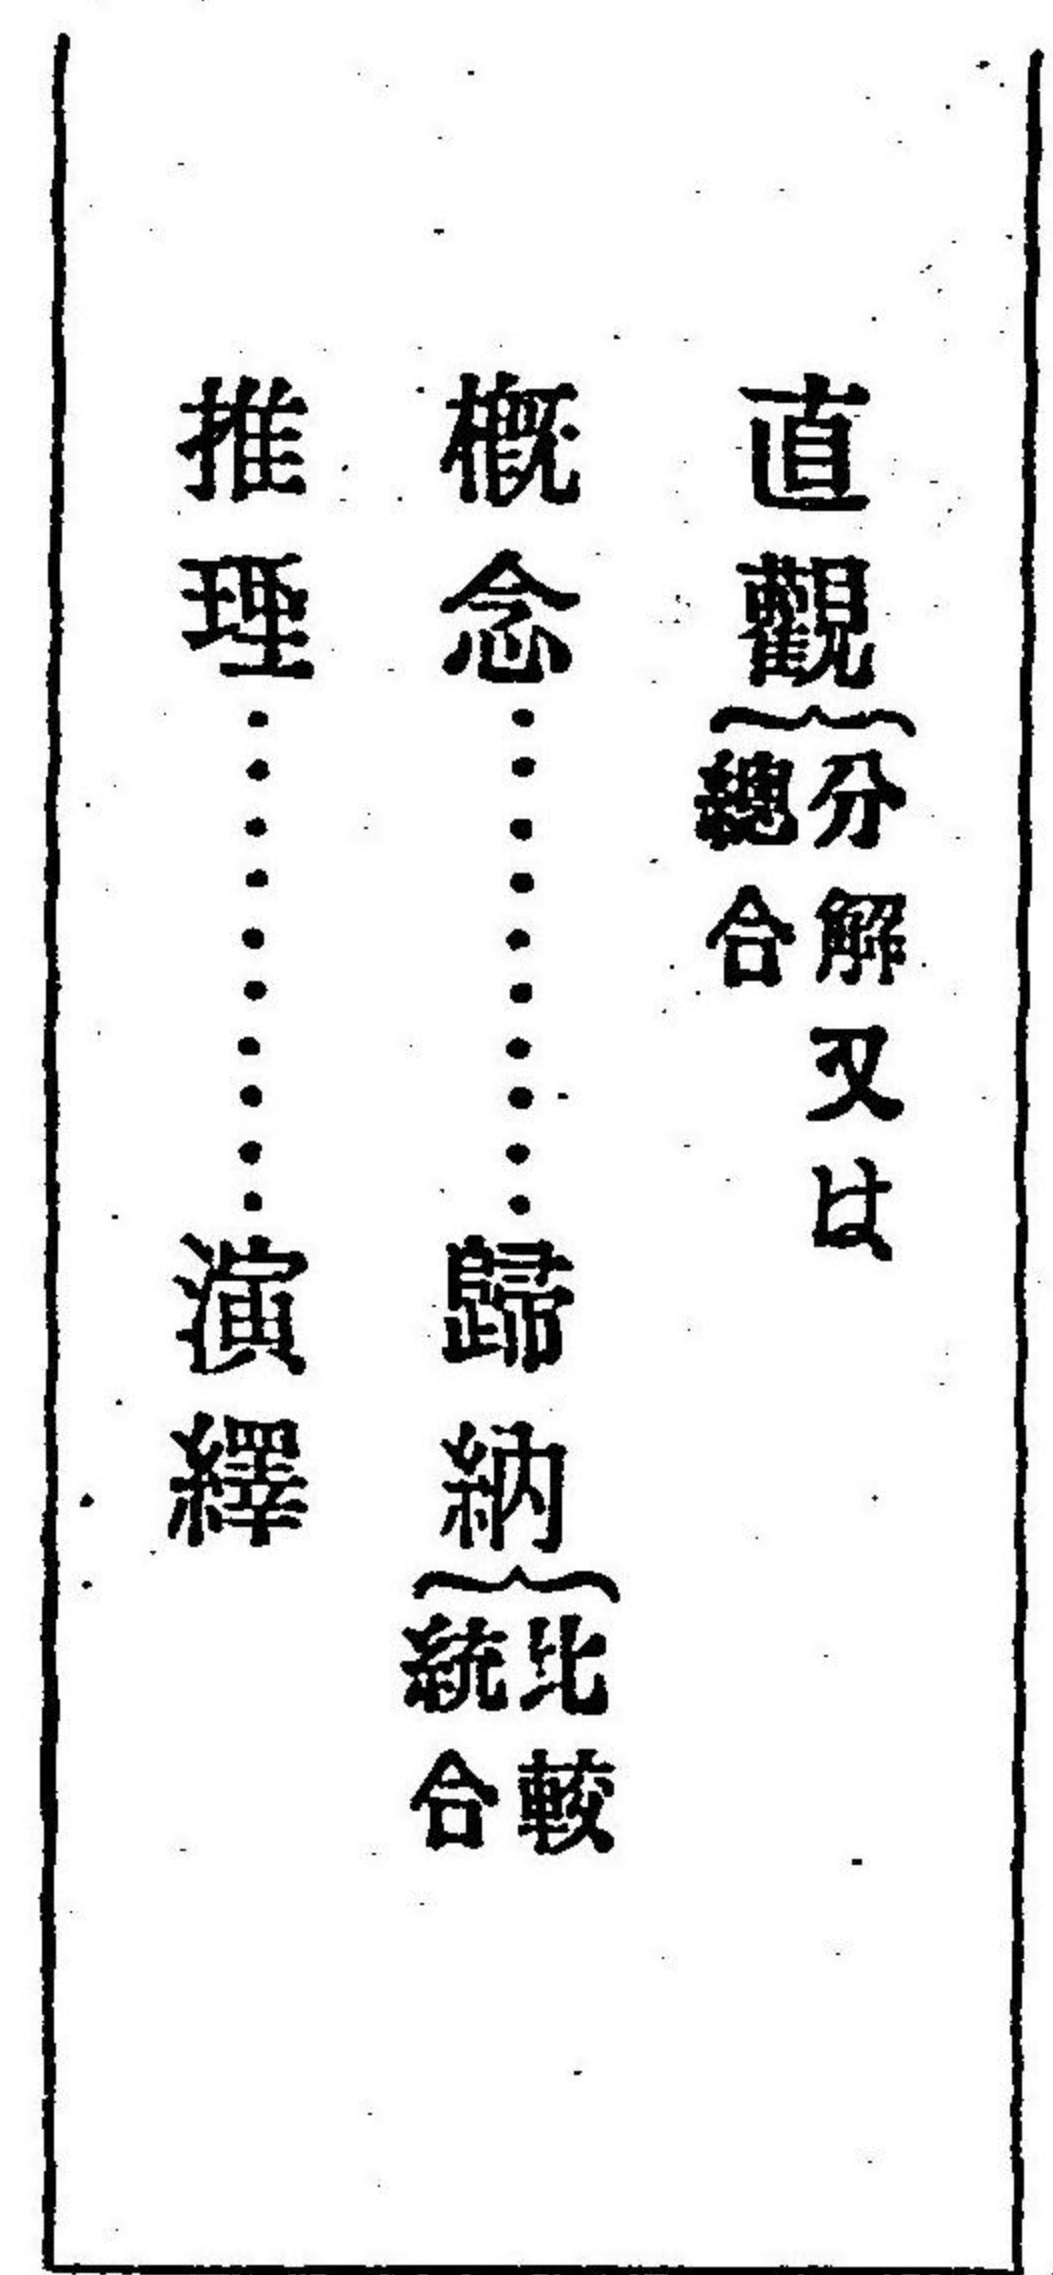 直觀{分解又は
總合
概念‥‥‥‥‥歸納{比較
統合
推理‥‥‥‥‥演繹